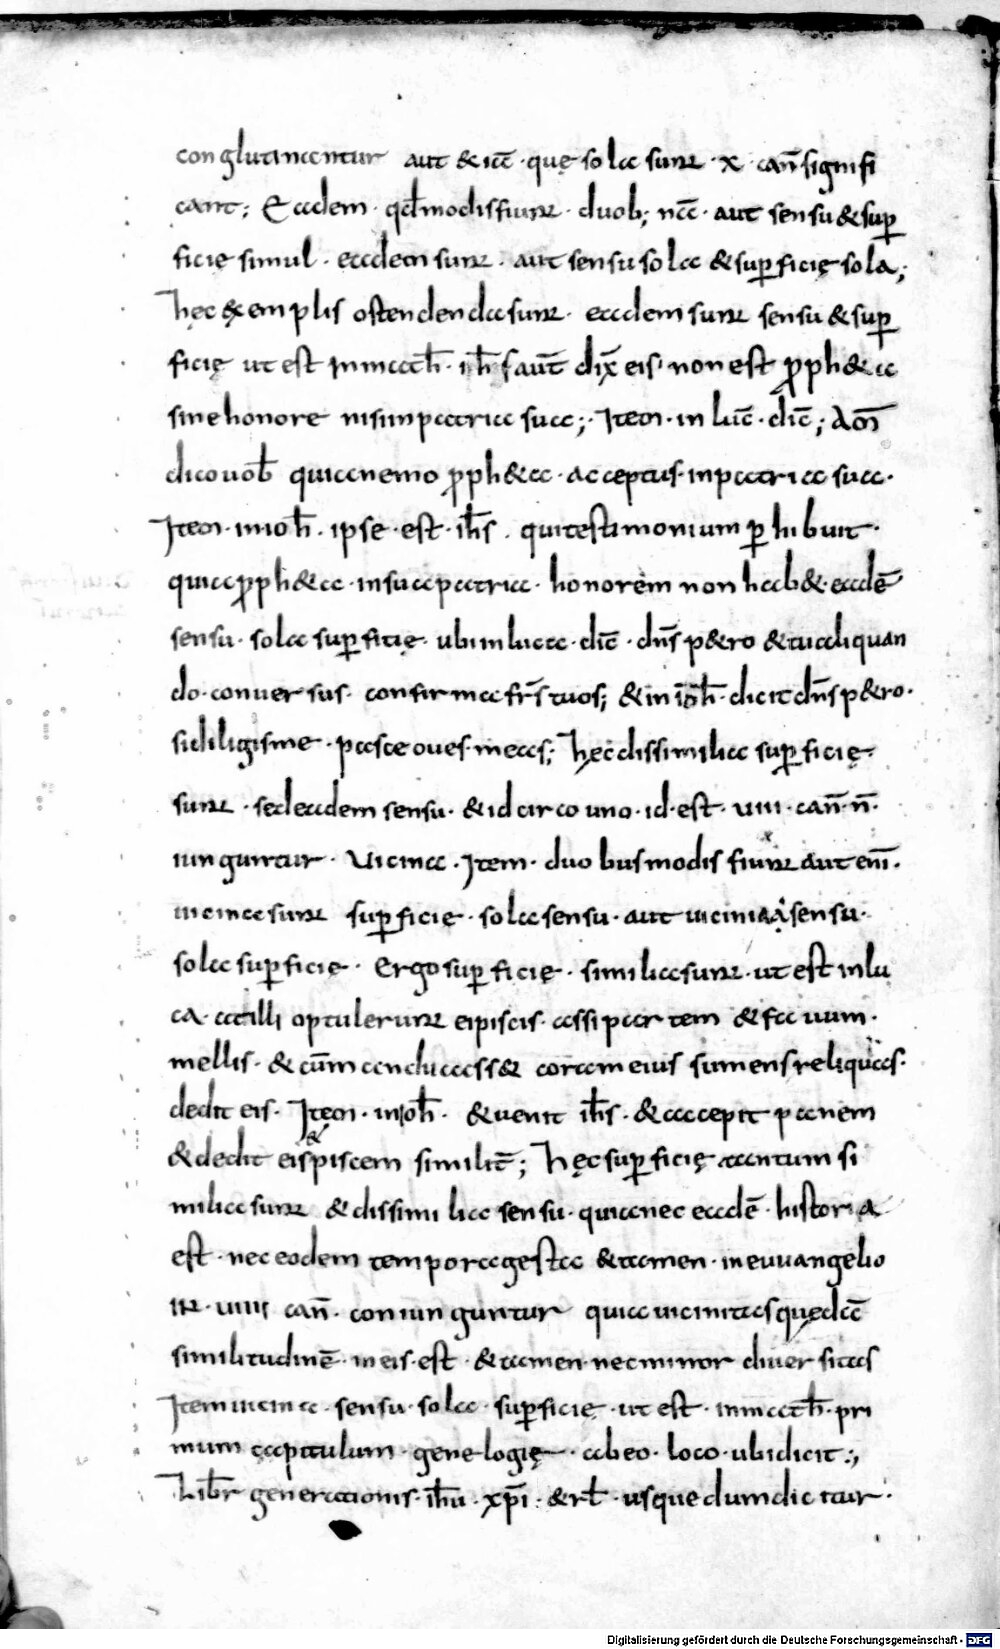 conglutinentur aut & ia̅ · quę sola sunt · x · can̅ signifi
cant; Eadem · qd̅modis fiunt · duob; na̅ · aut sensu & sup̱
ficię simul · eadem sunt · aut sensu sola & sup̱ficię sola;
hęc exemplis ostendenda sunt · eadem sunt sensu & sup̱
ficię ut est in math̅ · ih̅s aut̅ dix̅ eis non est p̱ph&a
sine honore nisi in patria sua; Item · in luc̅ · dic̅; Am̅
dico uob̅ quia nemo p̱ph&a · acceptus · in patria sua ·
Item · in ioh̅ · ipse · est · ih̅s · qui testimonium p̱hibuit ·
quia p̱ph&a · in sua patria · honorem non hab& · eade̅
sensu · sola sup̱ficię · ubi in luca · dic̅ · dn̅s p&ro & tu aliquan
do · conuersus · confirma fr̅s tuos; & in ioh̅ · dicit dn̅s p&ro ·
si diligis me · pasce oues · meas; hęc dissimilia sup̱ficię ·
sunt · sed eadem sensu · & idcirco uno · id · est · uiii · can̅ · n̅ ·
iunguntur · Uicina · Item · duobus modis fiunt aut eni̅ ·
uicina sunt sup̱ficię · sola sensu · aut uicinia sensu ·
sola sup̱ficię · Ergo sup̱ficię · similia sunt · ut est in lu
ca · at illi optulerunt ei piscis · assi partem & fauum ·
mellis · & cu̅ manducass& coram eius sumens reliquas ·
dedit eis · Item · in ioh̅ · & uenit ih̅s · & accepit panem
& dedit eis & piscem similit̅; hęc sup̱ficię tantum si
milia sunt & dissimilia sensu · quia nec eade̅ · historia
est · nec eodem tempora gesta & tamen · in euuangelio
in · uiiii can̅ · coniunguntur quia uicinitas quęda̅
similitudine̅ · in eis · est · & tamen · nec minor diuersitas
Item uicina · sensu · sola · sup̱ficię · ut est · in math̅ · pri
mum capitulum · genelogię · ab eo · loco · ubi dicit;
Lib̅r generationis · ih̅u · xp̅i · & rl̅ · usque dum dicitur ·
Digitalisierung gefördert durch die Deutsche Forschungsgemeinschaft - DFG